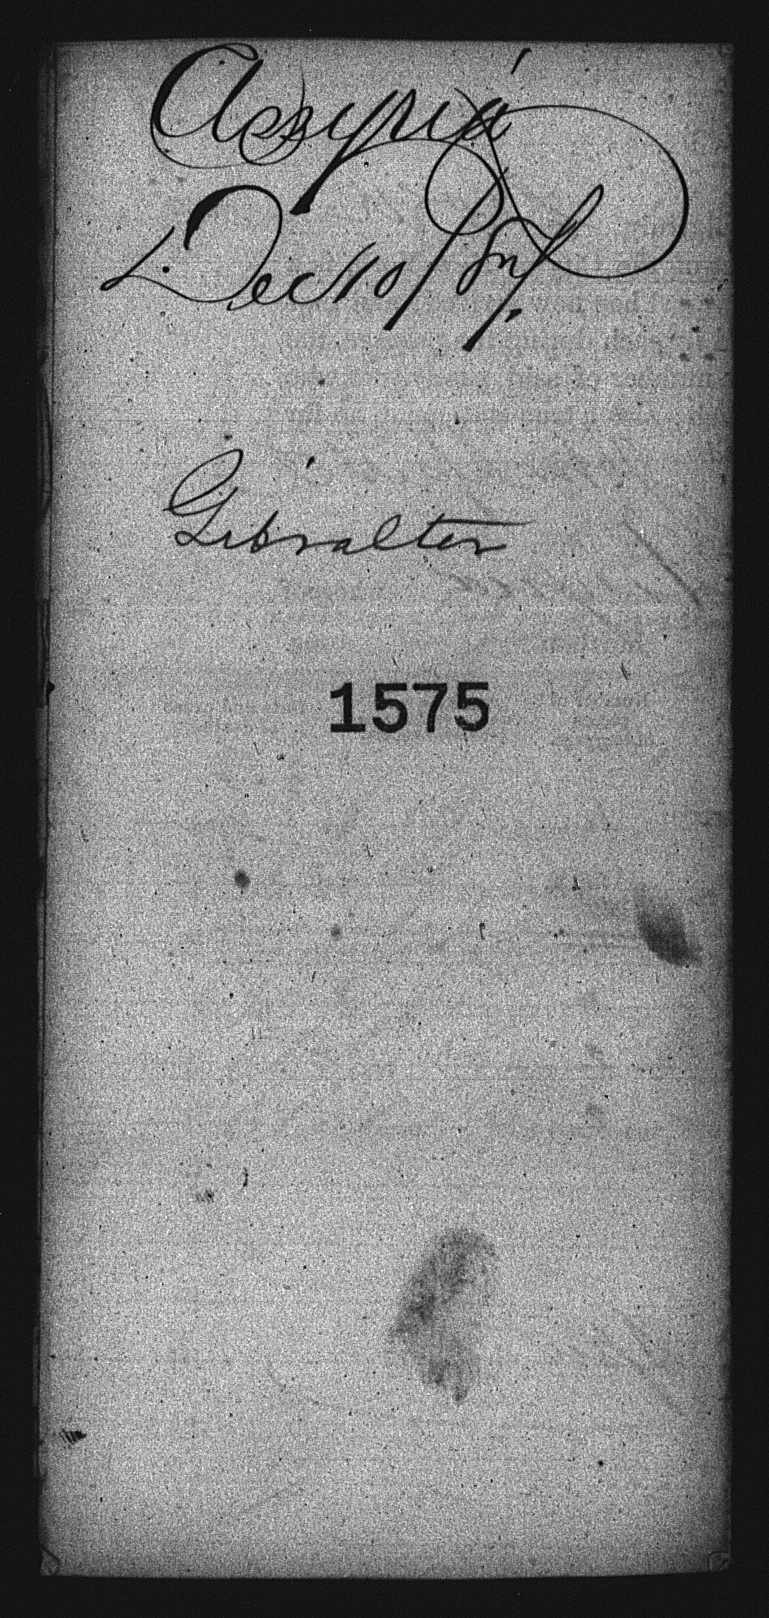 Assyria
Dec 10/
Gibralter
1575